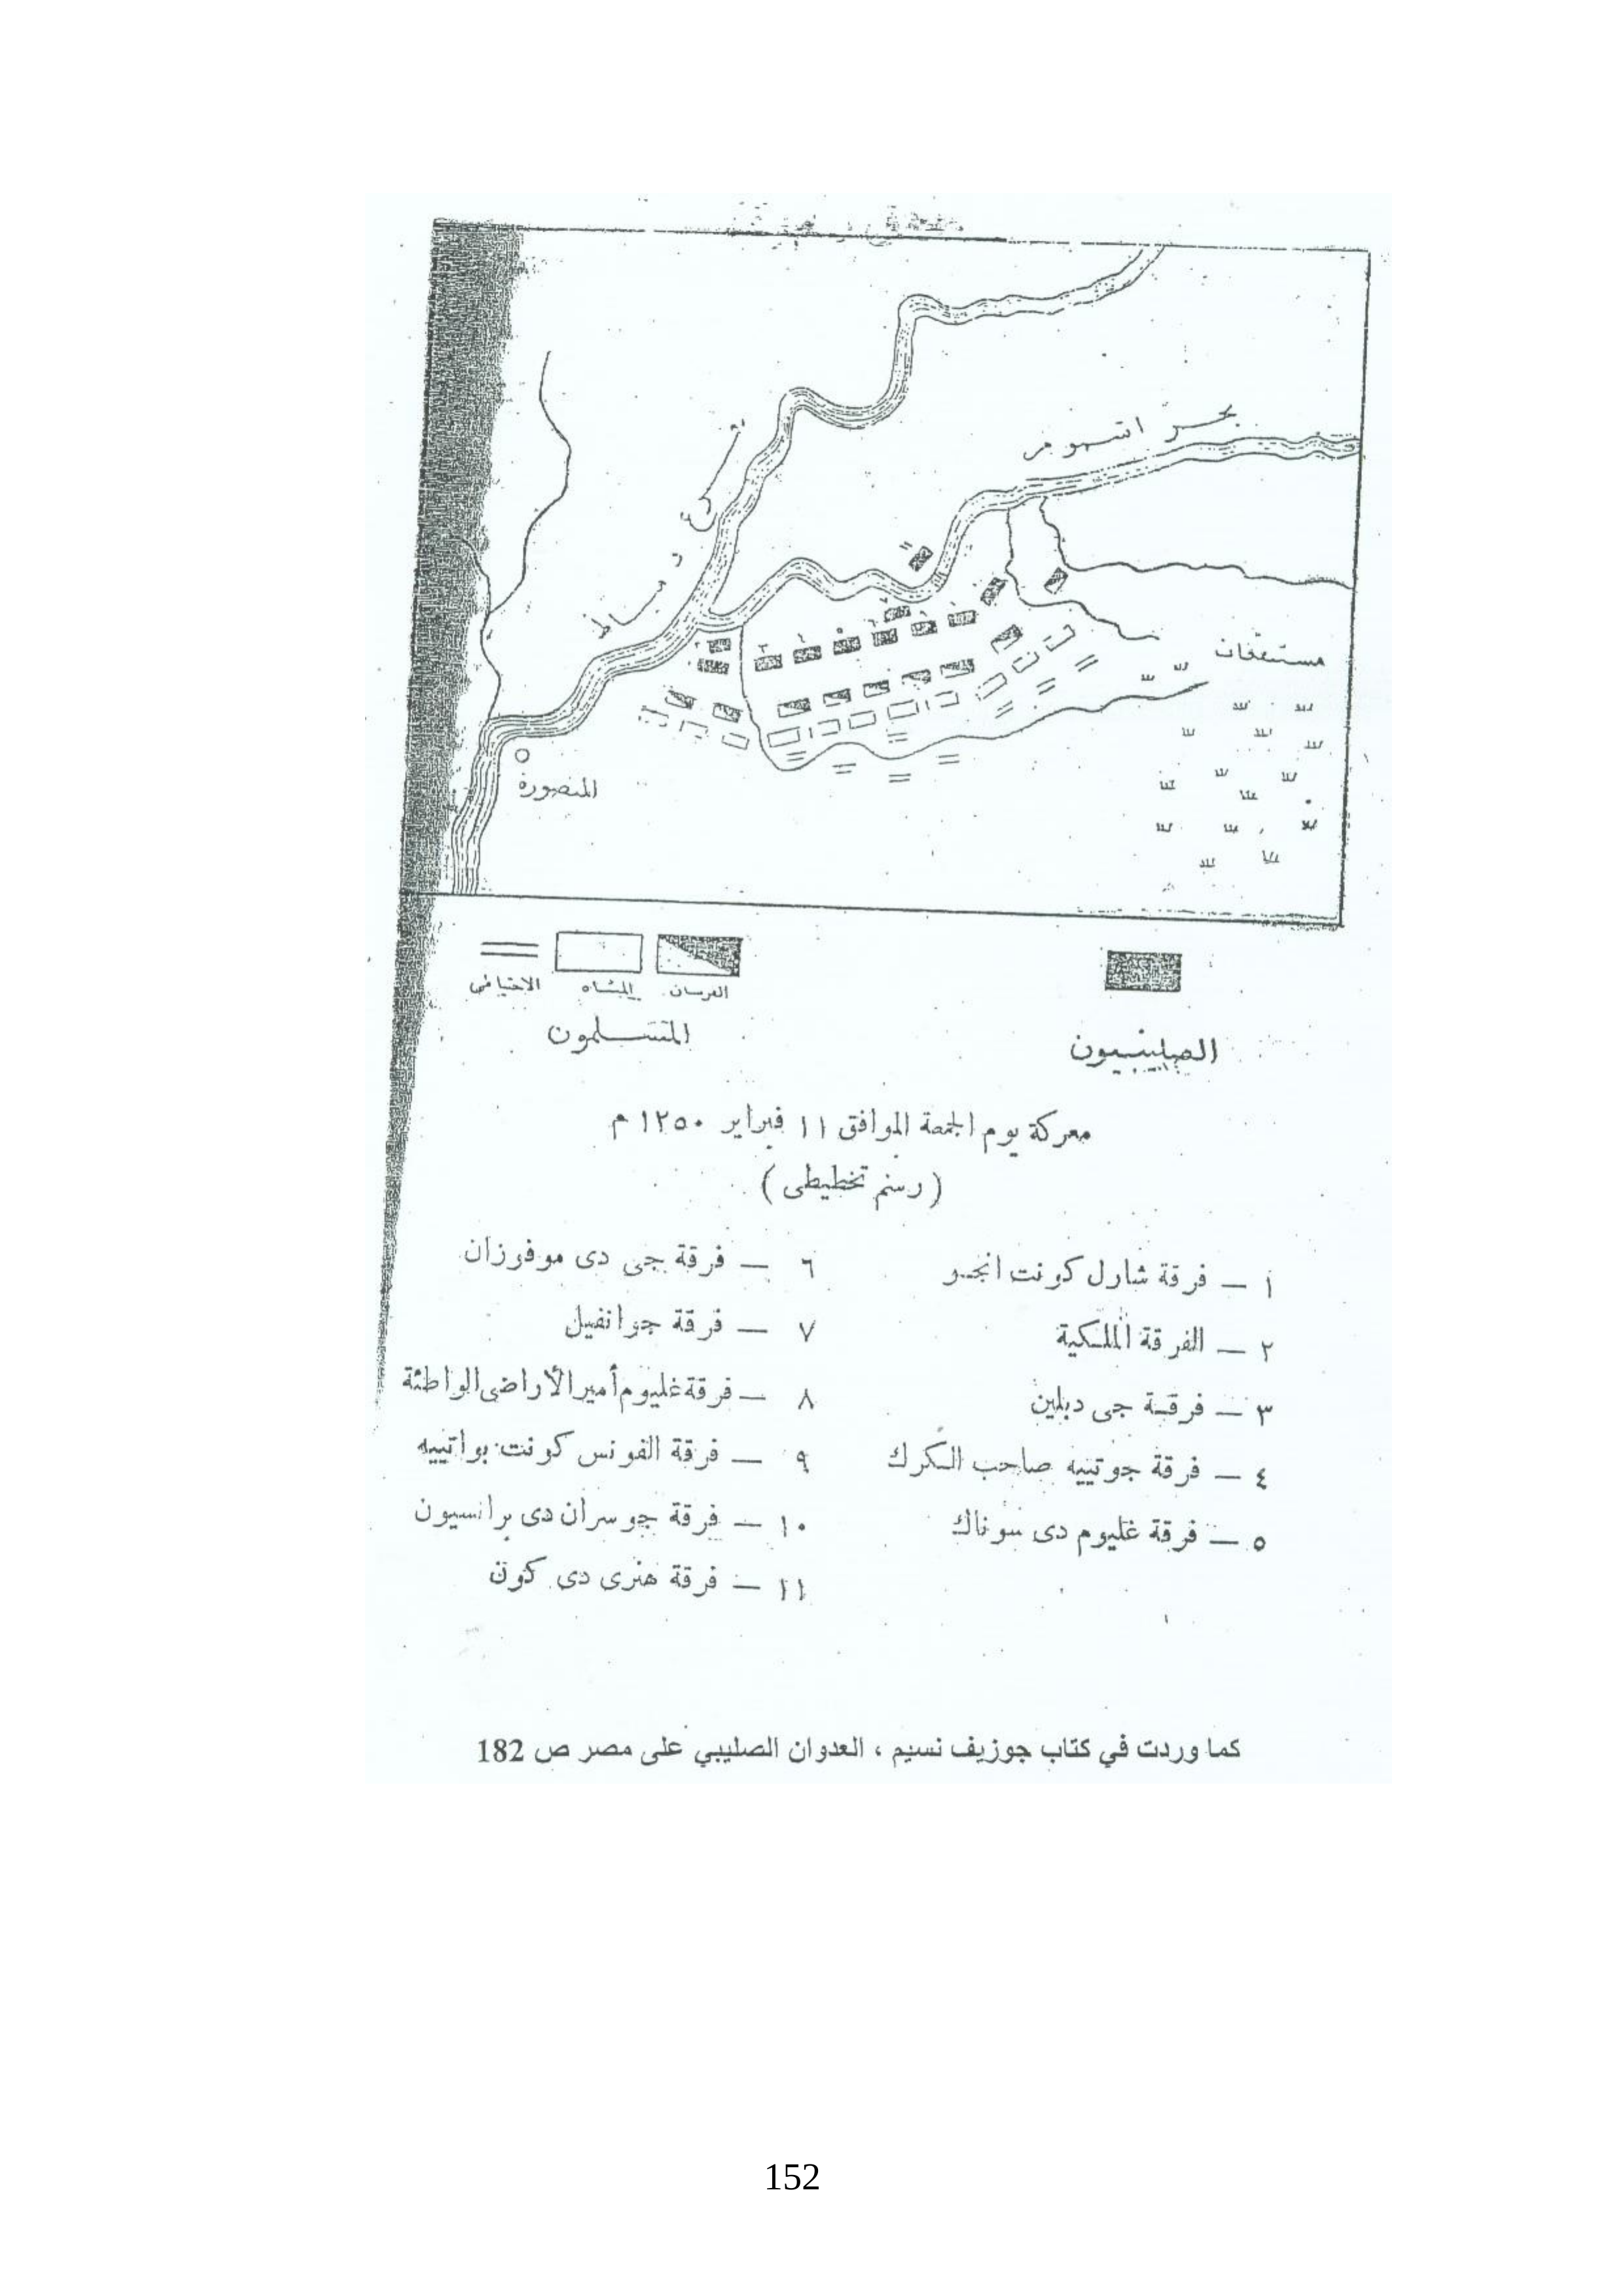 بحر اشموم
فرع دمياط
مستنقعات
المنصورة
الفرسان المشاه الاحتياطى
المسلمون
الصليبيون
معركة يوم الجمعة الموافق ١١ فبراير ١٢٥٠ م
(رسم تخطيطى)
١ — فرقة شارل كونت انجو
٢ — الفرقة الملكية
٣ — فرقة جى دبلين
٤ — فرقة جوتييه صاحب الكرك
٥ — فرقة غليوم دى سوناك
٦ — فرقة جى دى موفوزان
٧ — فرقة جوانفيل
٨ — فرقة غليوم أمير الأراضى الواطئة
٩ — فرقة الفونس كونت بواتييه
١٠ — فرقة جوسران دى برانسيون
١١ — فرقة هنرى دى كون
كما وردت في كتاب جوزيف نسيم ، العدوان الصليبي على مصر ص 182
152